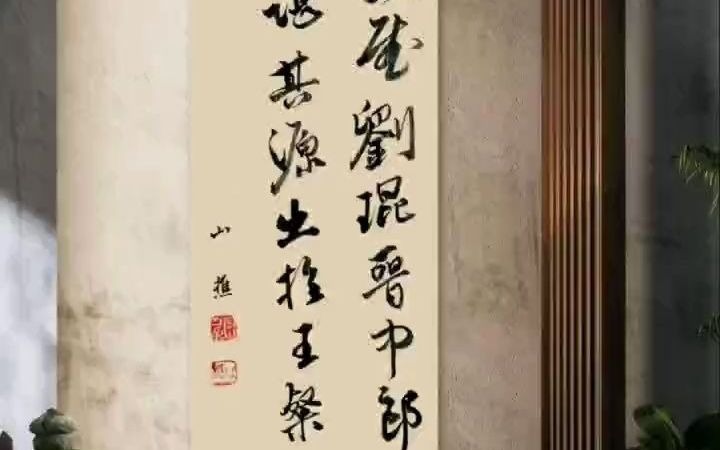 尉劉琨晉中郎
其源出於王粲
山樵